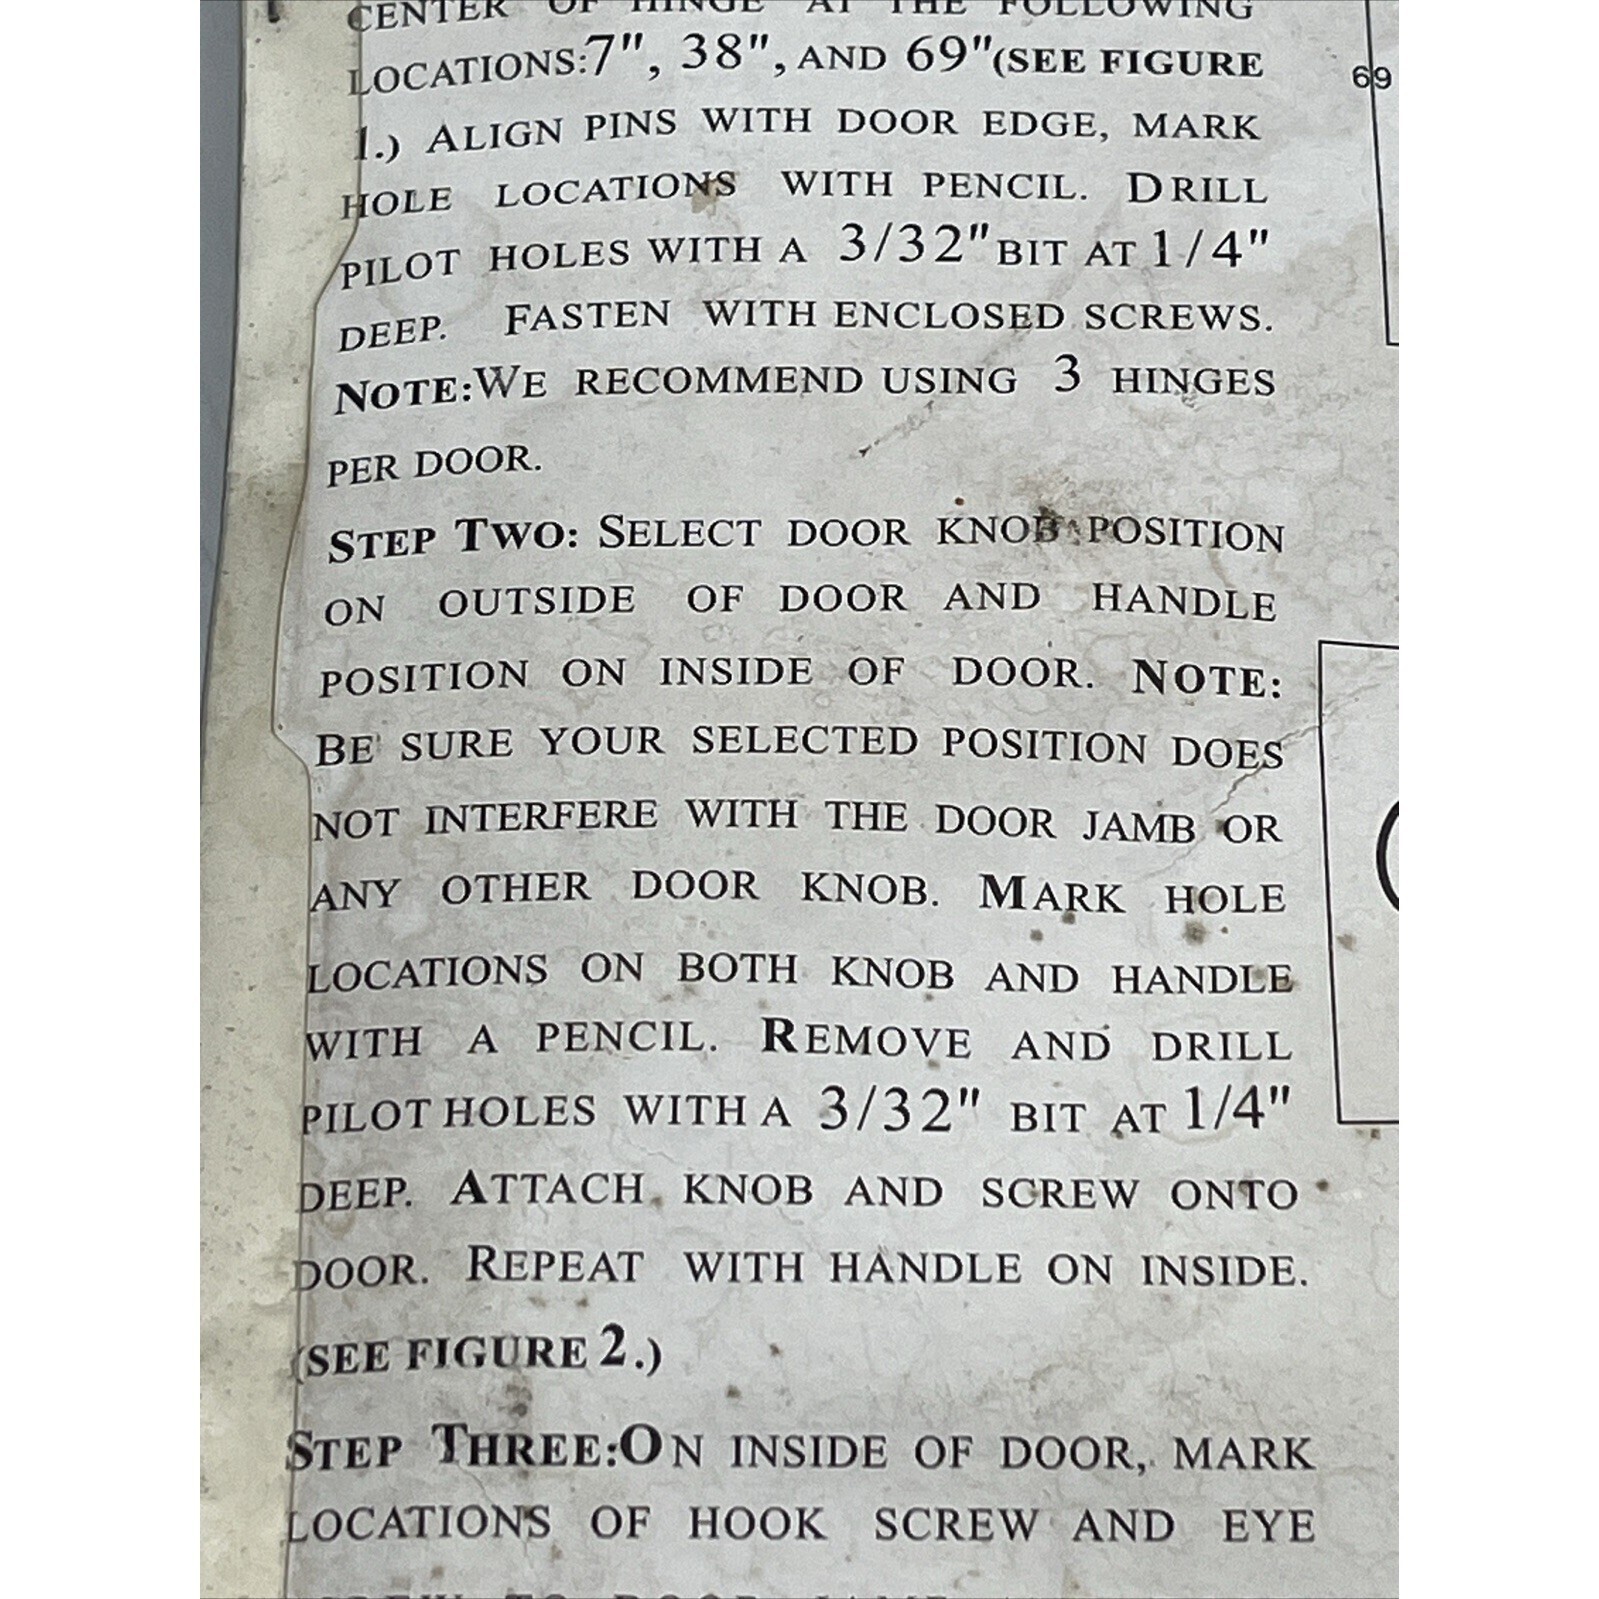 CENTER OF HINGE AT THE FOLLOWING
LOCATIONS:7", 38", AND 69"(SEE FIGURE
69
1.) ALIGN PINS WITH DOOR EDGE, MARK
HOLE LOCATIONS WITH PENCIL. DRILL
PILOT HOLES WITH A 3/32" BIT AT 1/4"
DEEP. FASTEN WITH ENCLOSED SCREWS.
NOTE:WE RECOMMEND USING 3 HINGES
PER DOOR.
STEP TWO: SELECT DOOR KNOB POSITION
ON OUTSIDE OF DOOR AND HANDLE
POSITION ON INSIDE OF DOOR. NOTE:
BE SURE YOUR SELECTED POSITION DOES
NOT INTERFERE WITH THE DOOR JAMB OR
ANY OTHER DOOR KNOB. MARK HOLE
LOCATIONS ON BOTH KNOB AND HANDLE
WITH A PENCIL. REMOVE AND DRILL
PILOT HOLES WITH A 3/32" BIT AT 1/4"
DEEP. ATTACH KNOB AND SCREW ONTO
DOOR. REPEAT WITH HANDLE ON INSIDE.
(SEE FIGURE 2.)
STEP THREE:ON INSIDE OF DOOR, MARK
LOCATIONS OF HOOK SCREW AND EYE